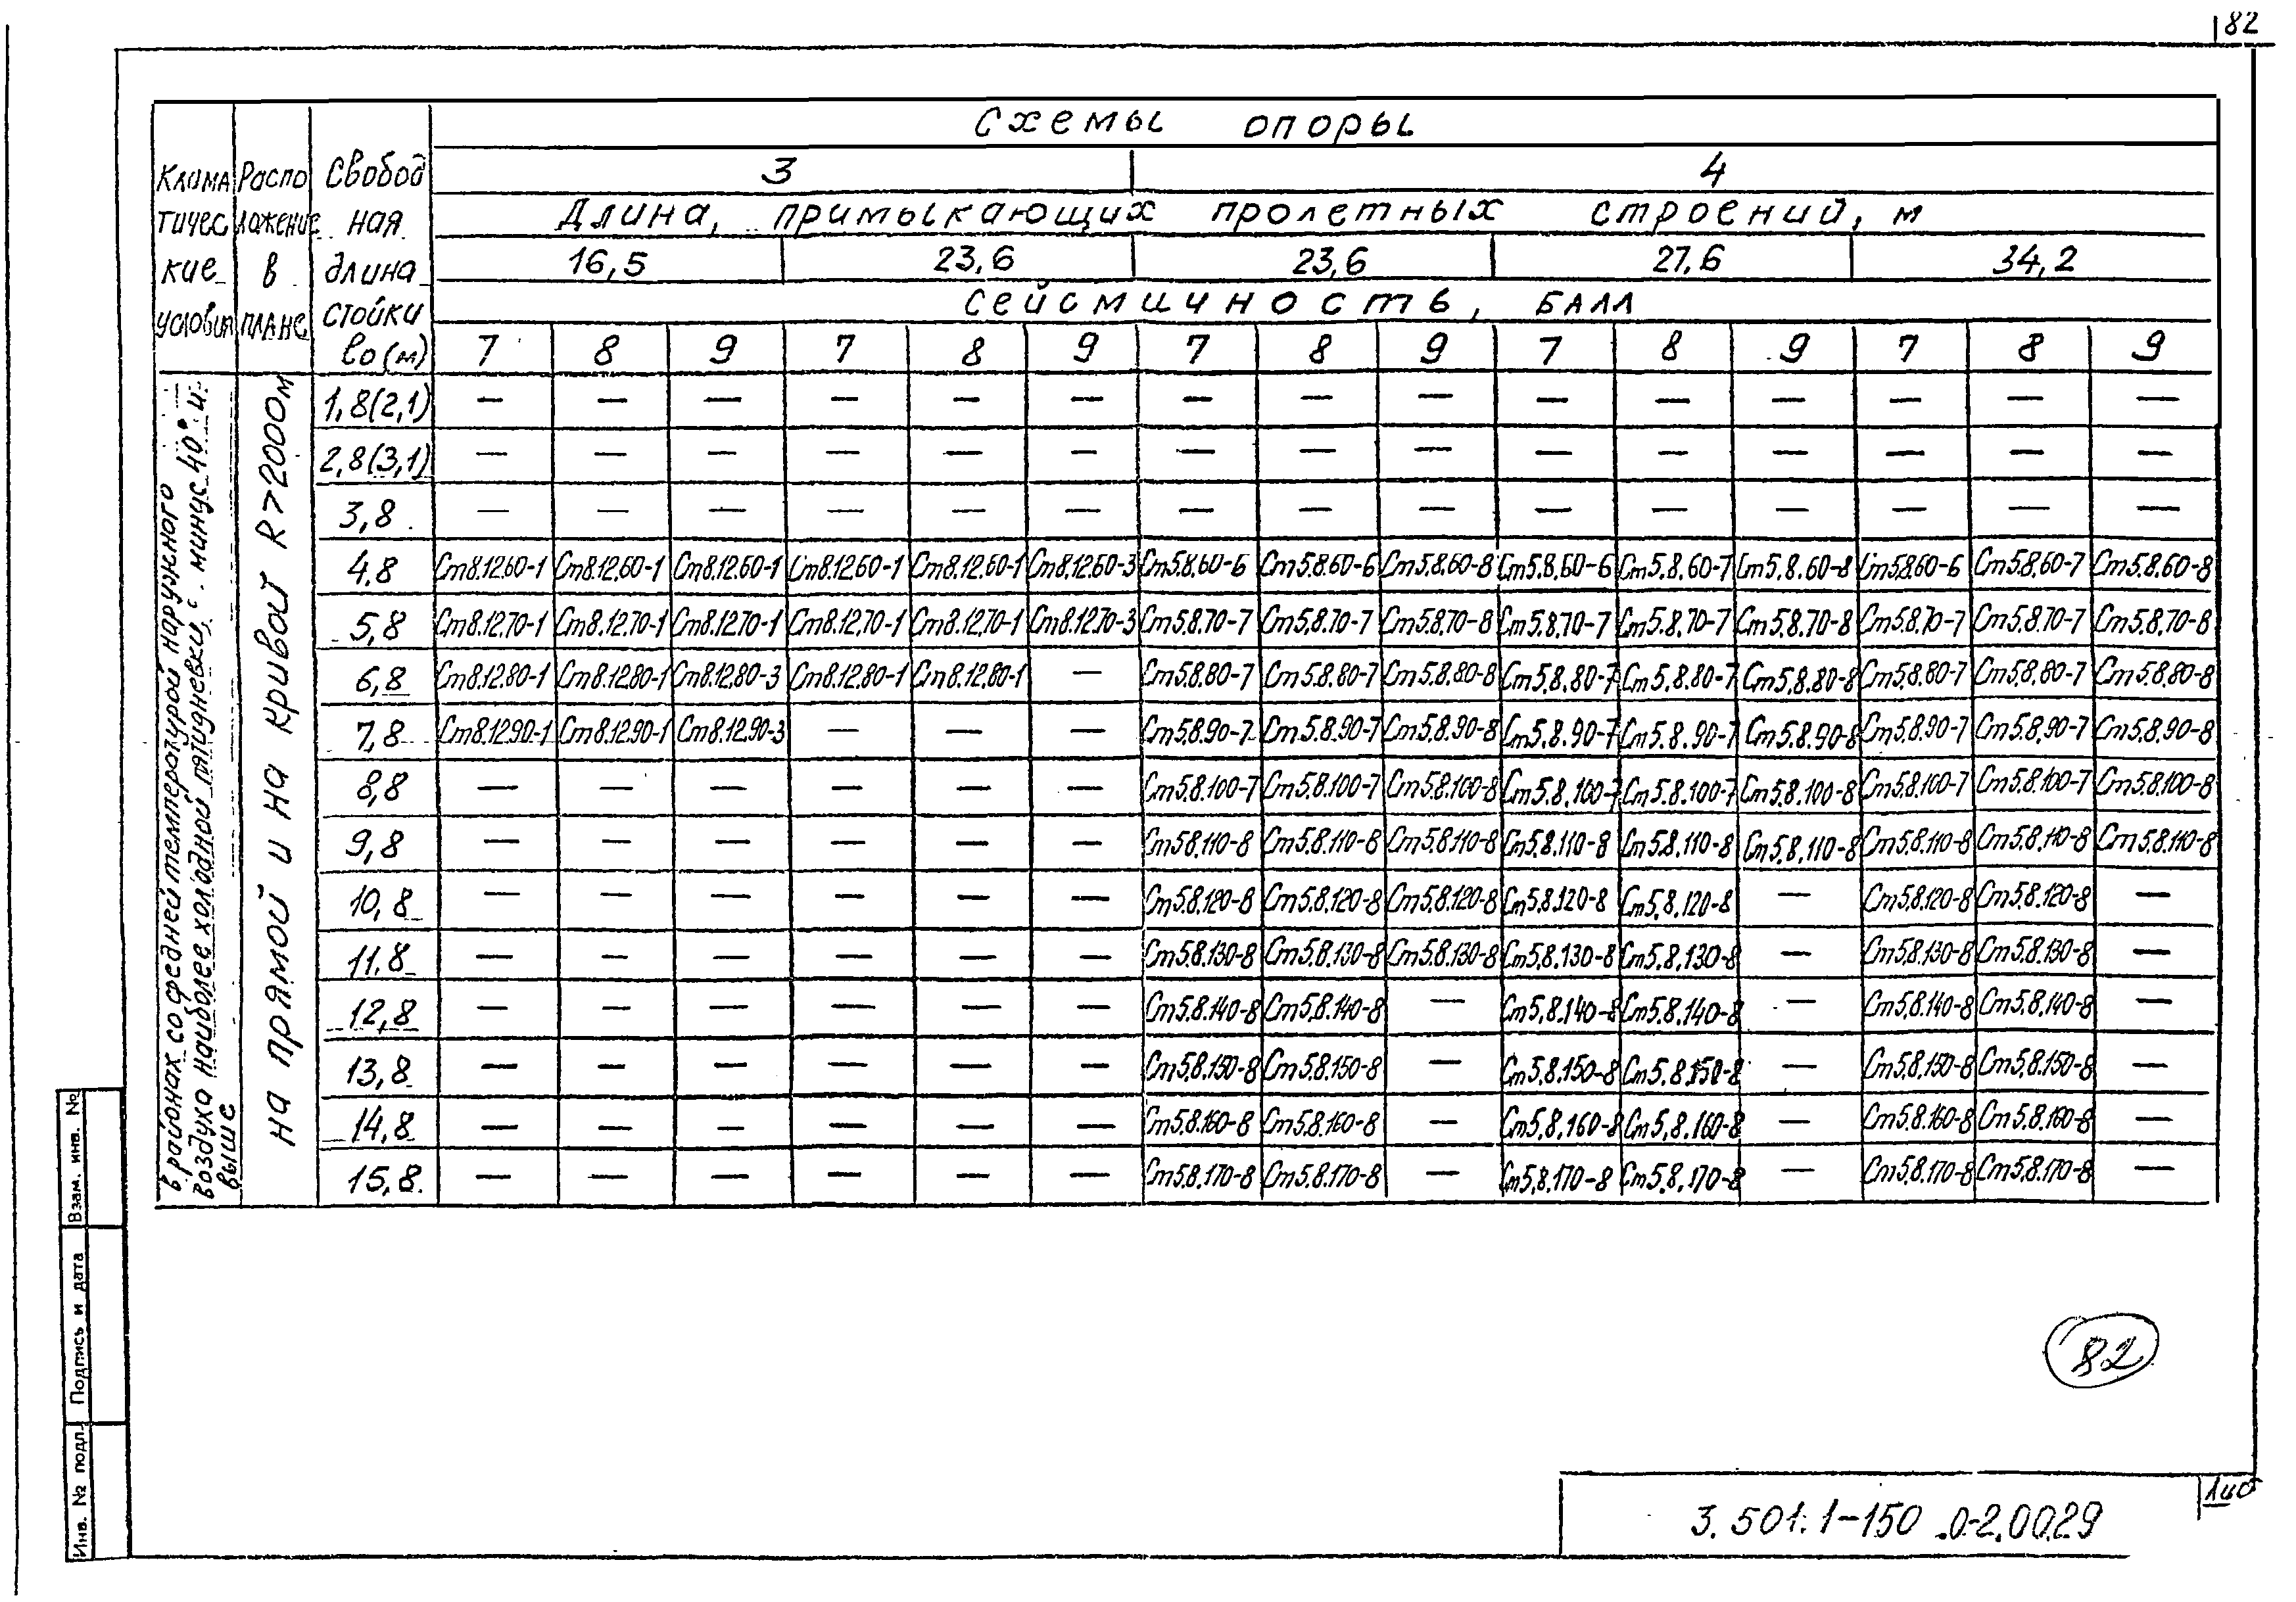 82
Схемы опоры
Климатичес кие условия
Расположение в плане
Свободная длина стойки lo (м)
3 4
Длина, примыкающих пролетных строений, м
16,5 23,6 23,6 27,6 34,2
Сейсмичность, БАЛЛ
7 8 9 7 8 9 7 8 9 7 8 9 7 8 9
в районах со средней температурой наружного
воздуха наиболее холодной пятидневки, с. минус 40° и
выше
на прямой и на кривой R>2000м
1,8(2,1) — — — — — — — — — — — — — — —
2,8(3,1) — — — — — — — — — — — — — — —
3,8 — — — — — — — — — — — — — — —
4,8 Ст8.12.60-1 Ст8.12.60-1 Ст8.12.60-1 Ст8.12.60-1 Ст8.12.60-1 Ст8.12.60-3 Ст5.8.60-6 Ст5.8.60-6 Ст5.8.60-8 Ст5.8.60-6 Ст5.8.60-7 Ст5.8.60-8 Ст5.8.60-6 Ст5.8.60-7 Ст5.8.60-8
5,8 Ст8.12.70-1 Ст8.12.70-1 Ст8.12.70-1 Ст8.12.70-1 Ст8.12.70-1 Ст8.12.70-3 Ст5.8.70-7 Ст5.8.70-7 Ст5.8.70-8 Ст5.8.70-7 Ст5.8.70-7 Ст5.8.70-8 Ст5.8.70-7 Ст5.8.70-7 Ст5.8.70-8
6,8 Ст8.12.80-1 Ст8.12.80-1 Ст8.12.80-3 Ст8.12.80-1 Ст8.12.80-1 — Ст5.8.80-7 Ст5.8.80-7 Ст5.8.80-8 Ст5.8.80-7 Ст5.8.80-7 Ст5.8.80-8 Ст5.8.80-7 Ст5.8.80-7 Ст5.8.80-8
7,8 Ст8.12.90-1 Ст8.12.90-1 Ст8.12.90-3 — — — Ст5.8.90-7 Ст5.8.90-7 Ст5.8.90-8 Ст5.8.90-7 Ст5.8.90-7 Ст5.8.90-8 Ст5.8.90-7 Ст5.8.90-7 Ст5.8.90-8
8,8 — — — — — — Ст5.8.100-7 Ст5.8.100-7 Ст5.8.100-8 Ст5.8.100-7 Ст5.8.100-7 Ст5.8.100-8 Ст5.8.100-7 Ст5.8.100-7 Ст5.8.100-8
9,8 — — — — — — Ст5.8.110-8 Ст5.8.110-8 Ст5.8.110-8 Ст5.8.110-8 Ст5.8.110-8 Ст5.8.110-8 Ст5.8.110-8 Ст5.8.110-8 Ст5.8.110-8
10,8 — — — — — — Ст5.8.120-8 Ст5.8.120-8 Ст5.8.120-8 Ст5.8.120-8 Ст5.8.120-8 — Ст5.8.120-8 Ст5.8.120-8 —
11,8 — — — — — — Ст5.8.130-8 Ст5.8.130-8 Ст5.8.130-8 Ст5.8.130-8 Ст5.8.130-8 — Ст5.8.130-8 Ст5.8.130-8 —
12,8 — — — — — — Ст5.8.140-8 Ст5.8.140-8 — Ст5.8.140-8 Ст5.8.140-8 — Ст5.8.140-8 Ст5.8.140-8 —
13,8 — — — — — — Ст5.8.150-8 Ст5.8.150-8 — Ст5.8.150-8 Ст5.8.150-8 — Ст5.8.150-8 Ст5.8.150-8 —
14,8 — — — — — — Ст5.8.160-8 Ст5.8.160-8 — Ст5.8.160-8 Ст5.8.160-8 — Ст5.8.160-8 Ст5.8.160-8 —
15,8 — — — — — — Ст5.8.170-8 Ст5.8.170-8 — Ст5.8.170-8 Ст5.8.170-8 — Ст5.8.170-8 Ст5.8.170-8 —
82
3.501.1-150.0-2.0029
Инв. № подл.
Подпись и дата
Взам. инв. №